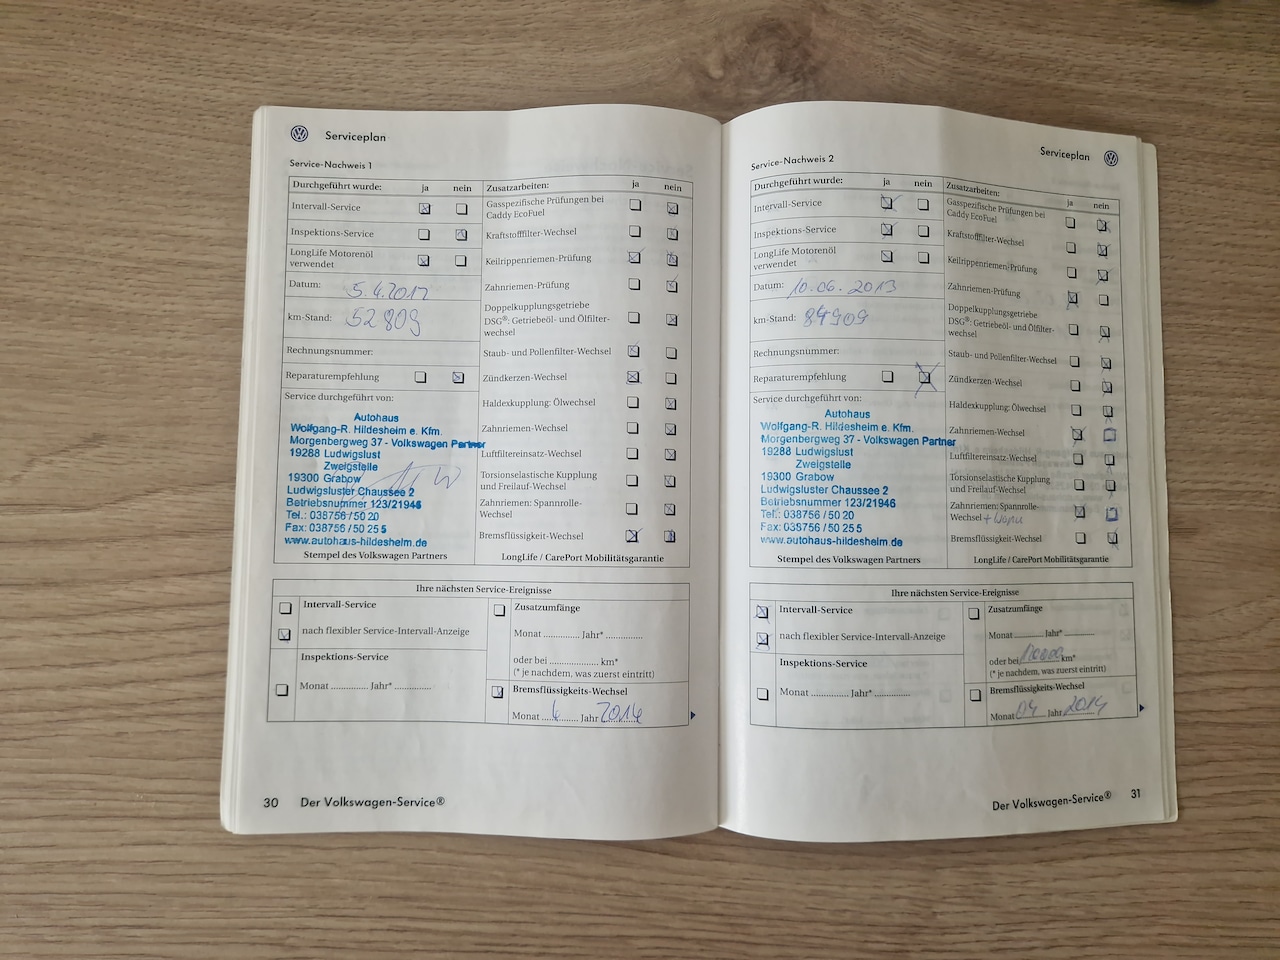 Serviceplan
Service-Nachweis 1
Durchgeführt wurde: ja nein
Intervall-Service
Inspektions-Service
LongLife Motorenöl
verwendet
Datum: 5.4.2012
km-Stand: 52809
Rechnungsnummer:
Reparaturempfehlung
Service durchgeführt von:
Autohaus
Wolfgang-R. Hildesheim e. Kfm.
Morgenbergweg 37 - Volkswagen Partner
19288 Ludwigslust
Zweigstelle
19300 Grabow
Ludwigsluster Chaussee 2
Betriebsnummer 123/21946
Tel.: 038756 / 50 20
Fax: 038756 / 50 25 5
www.autohaus-hildesheim.de
Stempel des Volkswagen Partners
Zusatzarbeiten: ja nein
Gasspezifische Prüfungen bei
Caddy EcoFuel
Kraftstofffilter-Wechsel
Keilrippenriemen-Prüfung
Zahnriemen-Prüfung
Doppelkupplungsgetriebe
DSG®: Getriebeöl- und Ölfilter-
wechsel
Staub- und Pollenfilter-Wechsel
Zündkerzen-Wechsel
Haldexkupplung: Ölwechsel
Zahnriemen-Wechsel
Luftfiltereinsatz-Wechsel
Torsionselastische Kupplung
und Freilauf-Wechsel
Zahnriemen: Spannrolle-
Wechsel
Bremsflüssigkeit-Wechsel
LongLife / CarePort Mobilitätsgarantie
Ihre nächsten Service-Ereignisse
Intervall-Service
nach flexibler Service-Intervall-Anzeige
Inspektions-Service
Monat ............. Jahr* .............
Zusatzumfänge
Monat ............. Jahr* .............
oder bei ................. km*
(* je nachdem, was zuerst eintritt)
Bremsflüssigkeits-Wechsel
Monat ... Jahr 2014
30 Der Volkswagen-Service®
Serviceplan
Service-Nachweis 2
Durchgeführt wurde: ja nein
Intervall-Service
Inspektions-Service
LongLife Motorenöl
verwendet
Datum: 10.06.2013
km-Stand: 84909
Rechnungsnummer:
Reparaturempfehlung
Service durchgeführt von:
Autohaus
Wolfgang-R. Hildesheim e. Kfm.
Morgenbergweg 37 - Volkswagen Partner
19288 Ludwigslust
Zweigstelle
19300 Grabow
Ludwigsluster Chaussee 2
Betriebsnummer 123/21946
Tel.: 038756 / 50 20
Fax: 038756 / 50 25 5
www.autohaus-hildesheim.de
Stempel des Volkswagen Partners
Zusatzarbeiten: ja nein
Gasspezifische Prüfungen bei
Caddy EcoFuel
Kraftstofffilter-Wechsel
Keilrippenriemen-Prüfung
Zahnriemen-Prüfung
Doppelkupplungsgetriebe
DSG®: Getriebeöl- und Ölfilter-
wechsel
Staub- und Pollenfilter-Wechsel
Zündkerzen-Wechsel
Haldexkupplung: Ölwechsel
Zahnriemen-Wechsel
Luftfiltereinsatz-Wechsel
Torsionselastische Kupplung
und Freilauf-Wechsel
Zahnriemen: Spannrolle-
Wechsel
Bremsflüssigkeit-Wechsel
LongLife / CarePort Mobilitätsgarantie
Ihre nächsten Service-Ereignisse
Intervall-Service
nach flexibler Service-Intervall-Anzeige
Inspektions-Service
Monat ............. Jahr* .............
Zusatzumfänge
Monat ............. Jahr* .............
oder bei km*
(* je nachdem, was zuerst eintritt)
Bremsflüssigkeits-Wechsel
Monat 04 Jahr 2014
Der Volkswagen-Service® 31